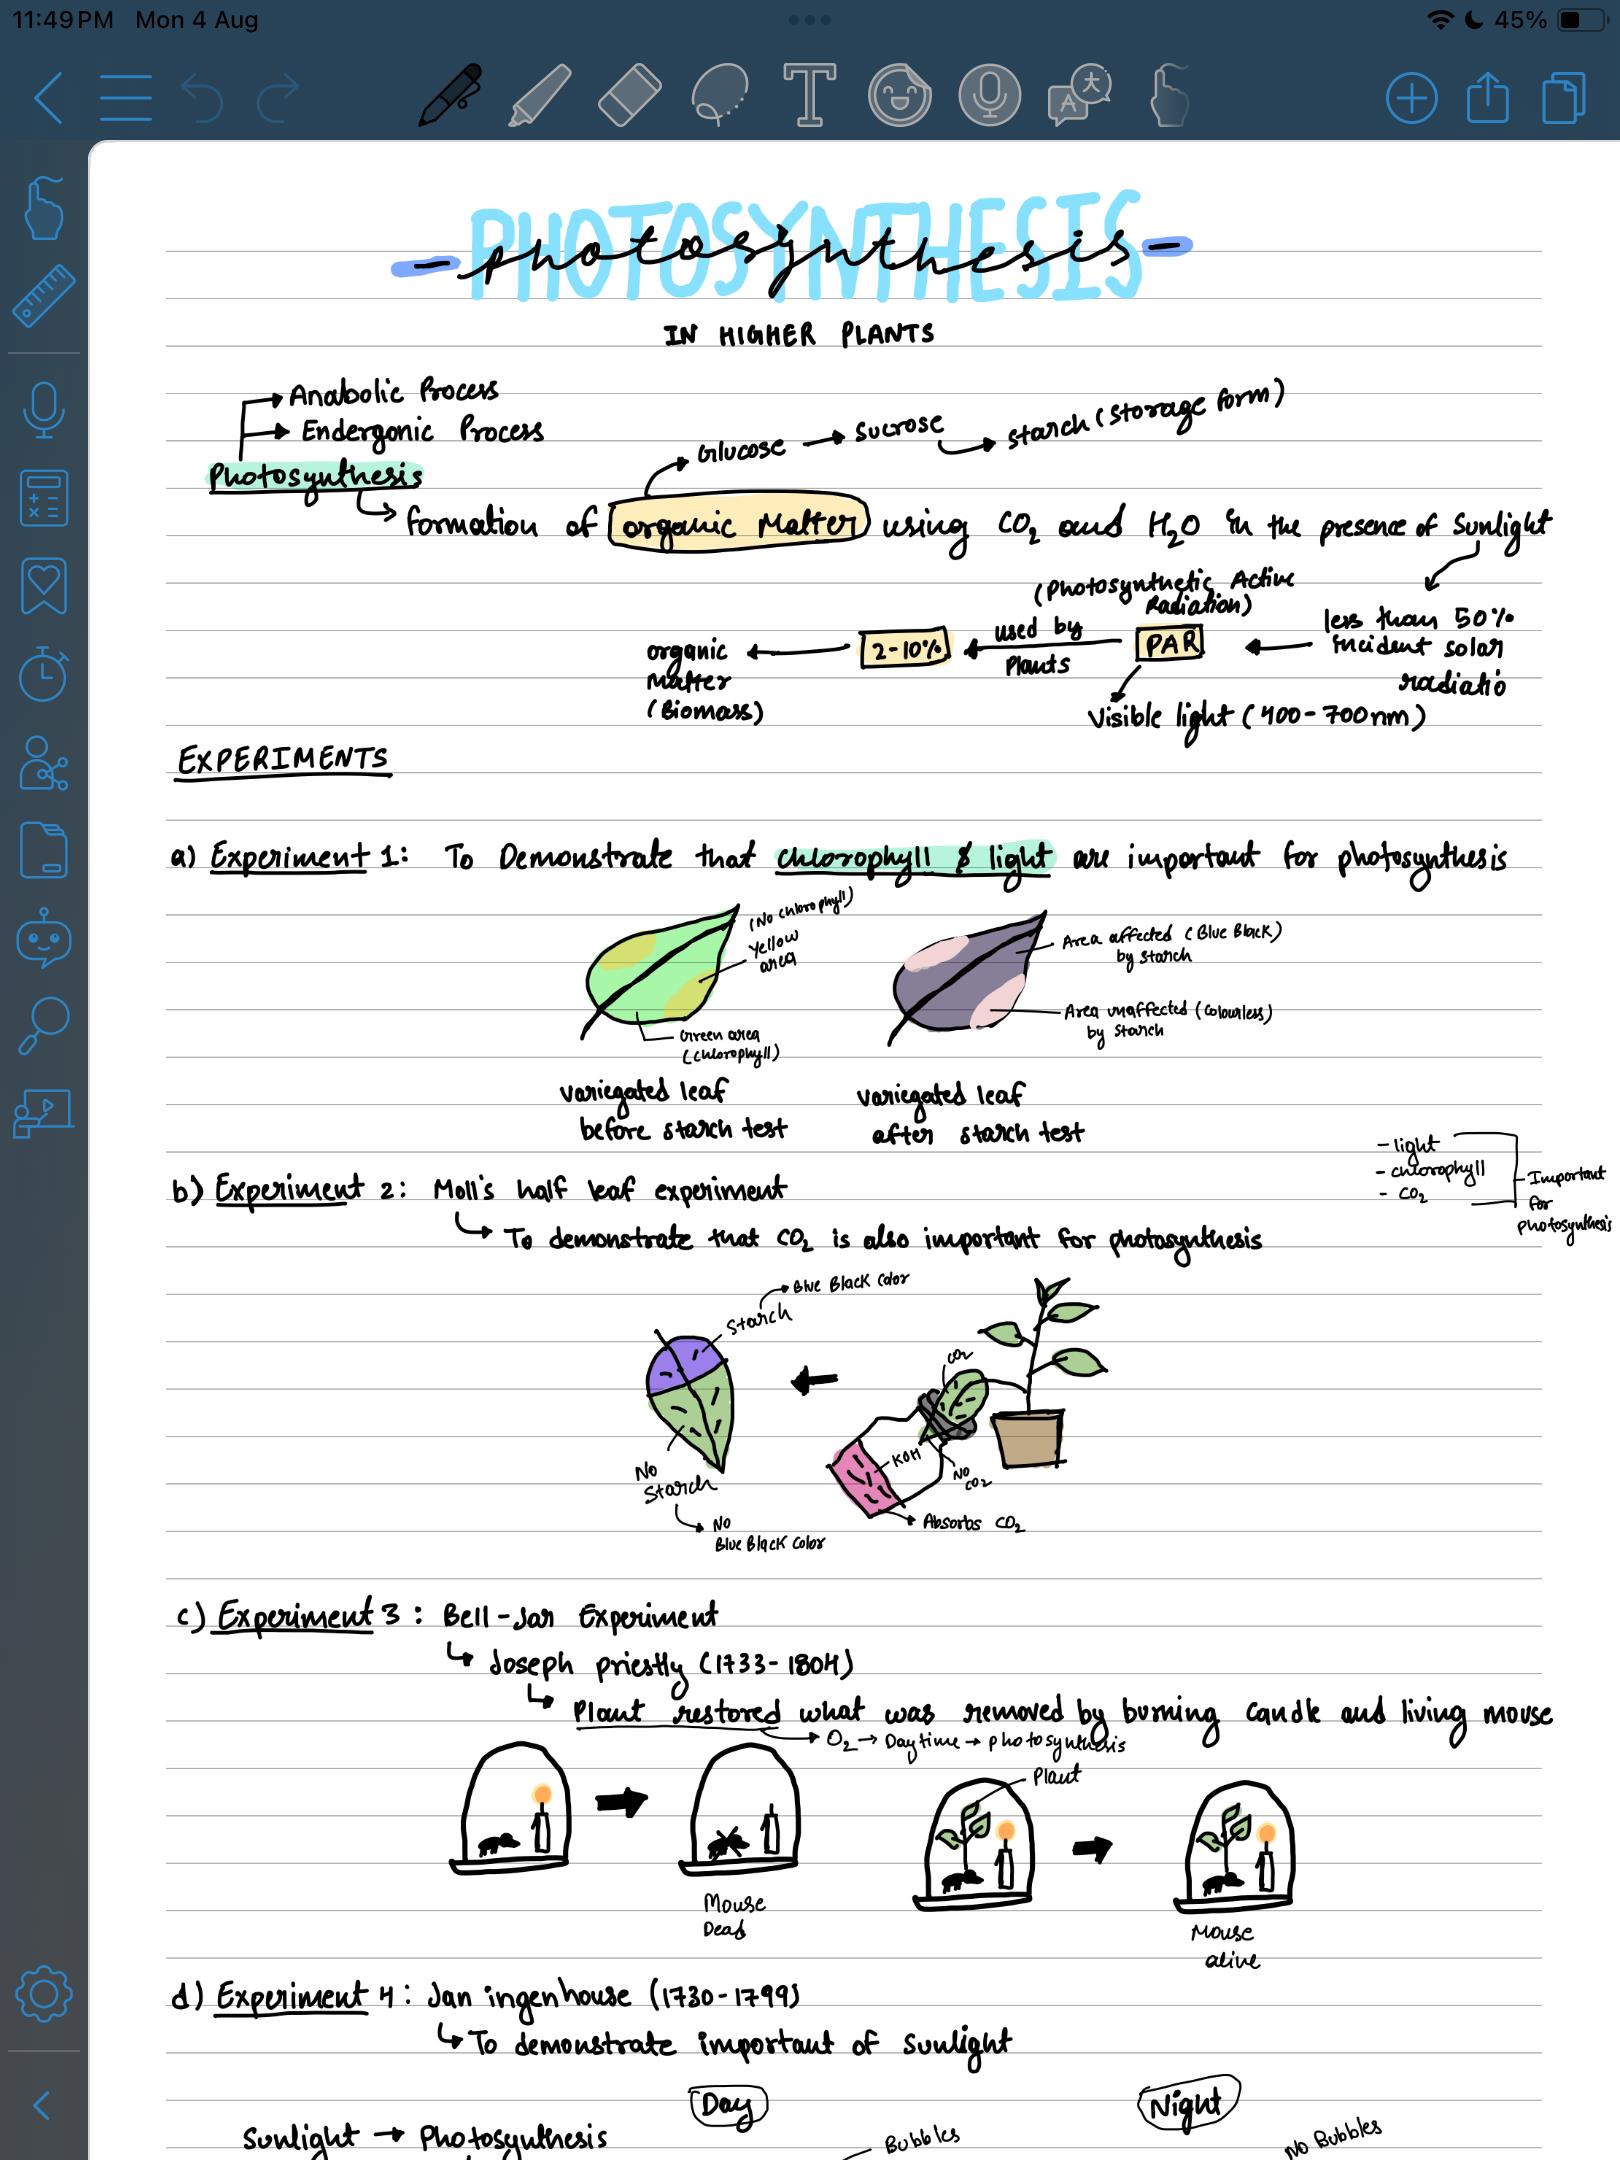 11:49 PM Mon 4 Aug
45%
PHOTOSYNTHESIS
- photosynthesis -
IN HIGHER PLANTS
Anabolic Process
Endergonic Process
Glucose → Sucrose → starch (storage form)
Photosynthesis
formation of organic Matter using CO2 and H2O in the presence of Sunlight
(Photosynthetic Active
Radiation)
less than 50%
incident solar
radiatio
PAR
used by
Plants
2-10%
organic
Matter
(Biomass)
Visible light (400-700nm)
EXPERIMENTS
a) Experiment 1: To Demonstrate that chlorophyll & light are important for photosynthesis
(No chlorophyll)
yellow
area
Green area
(chlorophyll)
Area affected (Blue Black)
by starch
Area unaffected (colourless)
by starch
variegated leaf
before starch test
variegated leaf
after starch test
- light
- chlorophyll
- CO2
Important
for
photosynthesis
b) Experiment 2: Moll's half leaf experiment
To demonstrate that CO2 is also important for photosynthesis
Blue Black Color
Starch
CO2
KOH
No
CO2
Absorbs CO2
No
Starch
No
Blue Black Color
c) Experiment 3: Bell-Jar Experiment
Joseph priestly (1733-1804)
Plant restored what was removed by burning candle and living mouse
O2 → Day time → photosynthesis
Plant
Mouse
Dead
Mouse
alive
d) Experiment 4: Jan ingenhouse (1730-1799)
To demonstrate important of Sunlight
Day
Night
Sunlight → Photosynthesis
Bubbles
No Bubbles